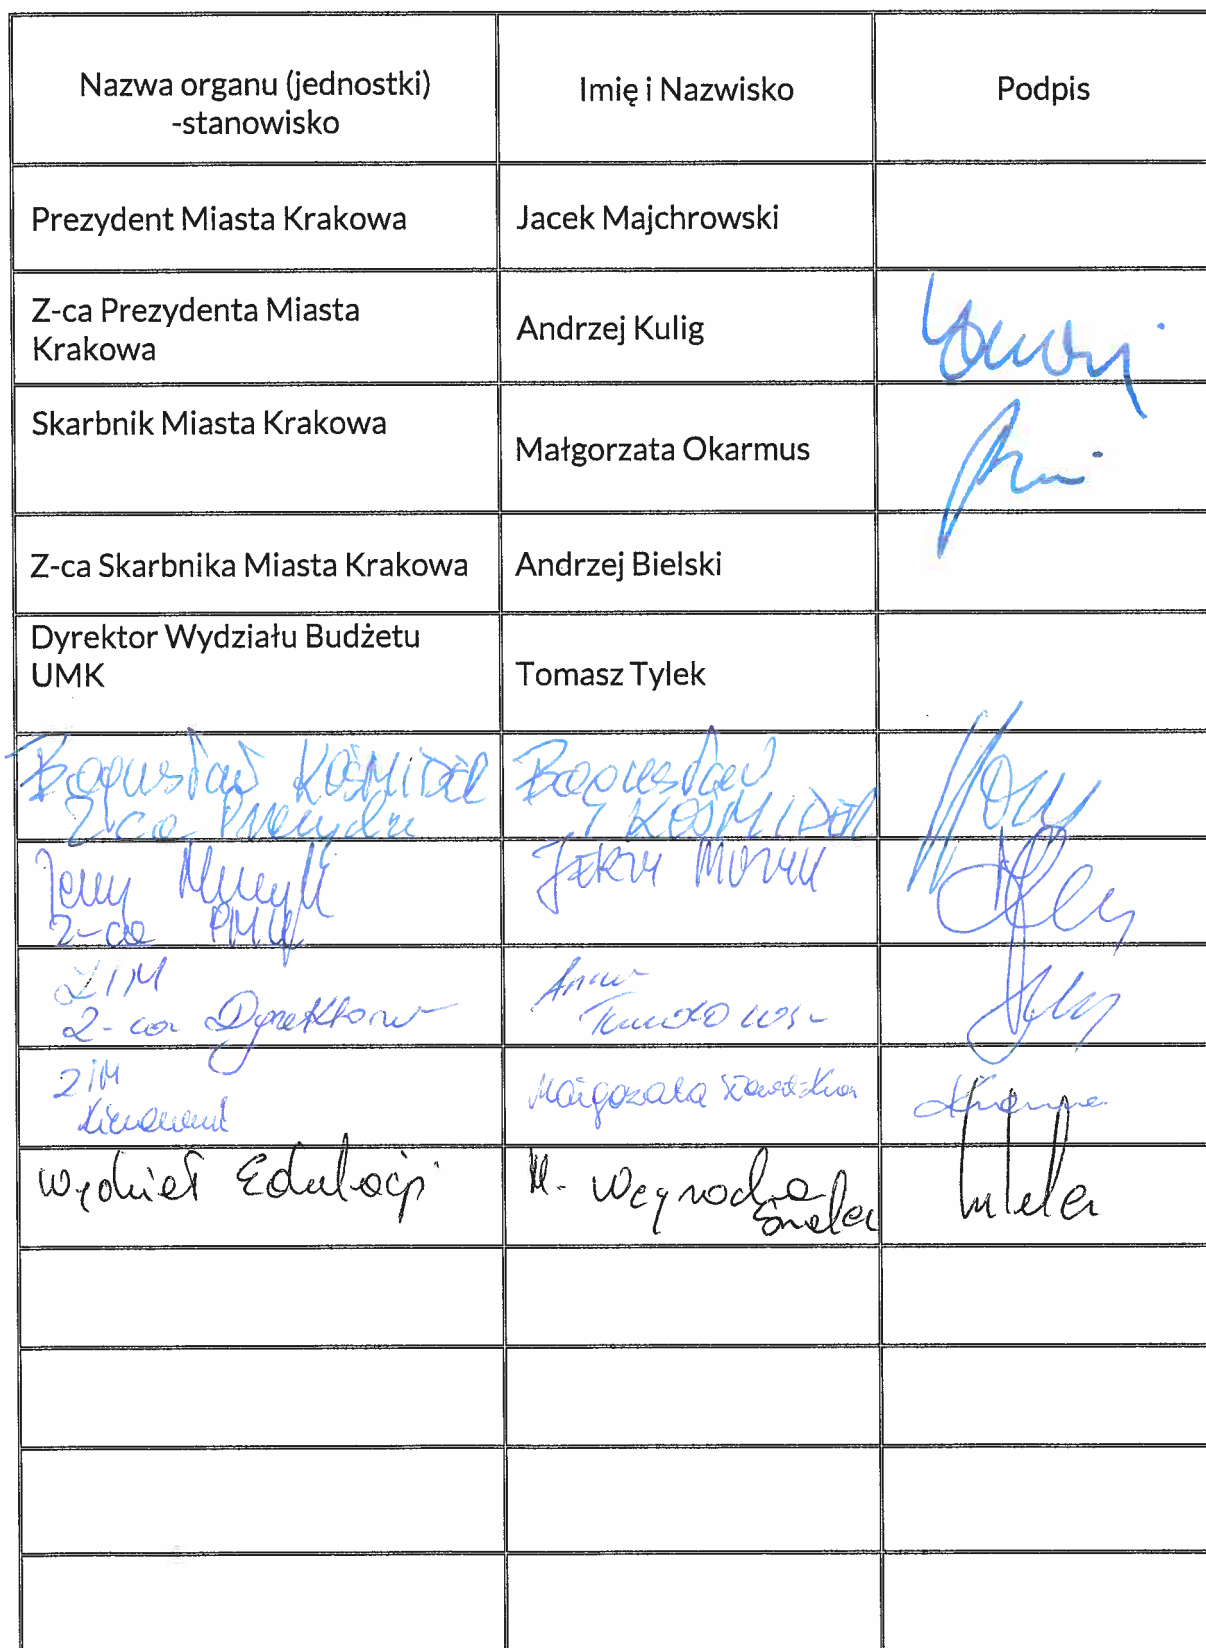 Nazwa organu (jednostki)
-stanowisko
Imię i Nazwisko
Podpis
Prezydent Miasta Krakowa
Jacek Majchrowski
Z-ca Prezydenta Miasta
Krakowa
Andrzej Kulig
Skarbnik Miasta Krakowa
Małgorzata Okarmus
Z-ca Skarbnika Miasta Krakowa
Andrzej Bielski
Dyrektor Wydziału Budżetu
UMK
Tomasz Tylek
Bogusław KOŚMIDER
Z-ca Prezydta
Bogusław
KOŚMIDER
Jerzy Muzyk
Z-ca PMK
JERZY MUZYK
ZIM
Z-ca Dyrektora
Anna
ZIM
Kierownik
Małgorzata
Wydział Edukacji
M.